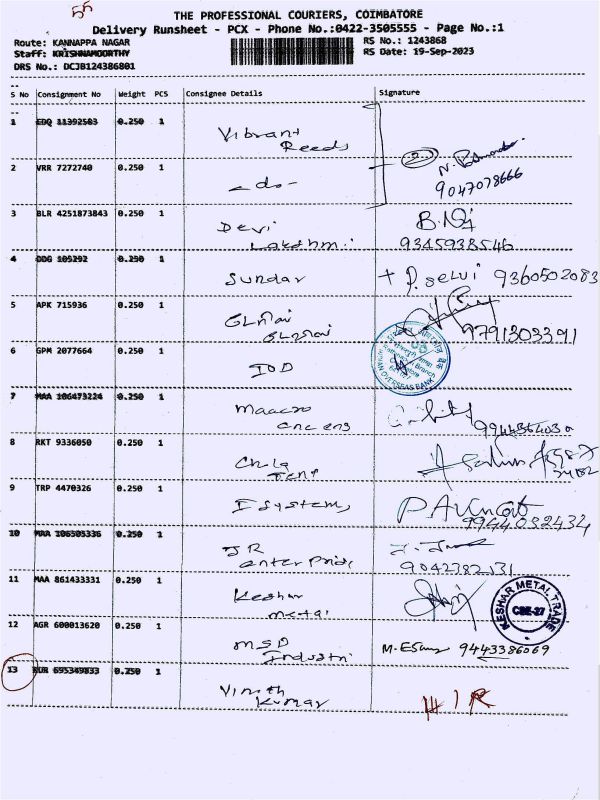 55
THE PROFESSIONAL COURIERS, COIMBATORE
Delivery Runsheet - PCX - Phone No.:0422-3505555 - Page No.:1
Route: KANNAPPA NAGAR
RS No.: 1243868
Staff: KRISHNAMOORTHY
RS Date: 19-Sep-2023
DRS No.: DCJB124386801
S No Consignment No Weight PCS Consignee Details Signature
1 EDQ 11392503 0.250 1 Vibrant
Reeds
2 VRR 7272740 0.250 1 - do -
2
9047078666
3 BLR 4251873843 0.250 1 Devi
Lakshmi
9345938546
4 DDG 105292 0.250 1 Sundar + P. Selvi 9360502083
5 APK 715936 0.250 1
9791303391
6 GPM 2077664 0.250 1 IOD
INDIAN OVERSEAS BANK
7 MAA 106473224 0.250 1
8 RKT 9336050 0.250 1
9 TRP 4470326 0.250 1 I systems
9944052434
10 MAA 106505336 0.250 1 JR
enterprise
9042382131
11 MAA 861433331 0.250 1 Keshar
metal
KESHAR METAL TRADE
CBE-27
12 AGR 600013620 0.250 1 MSD
Industri
9443386069
13 695349833 0.250 1 Vinoth
Kumar